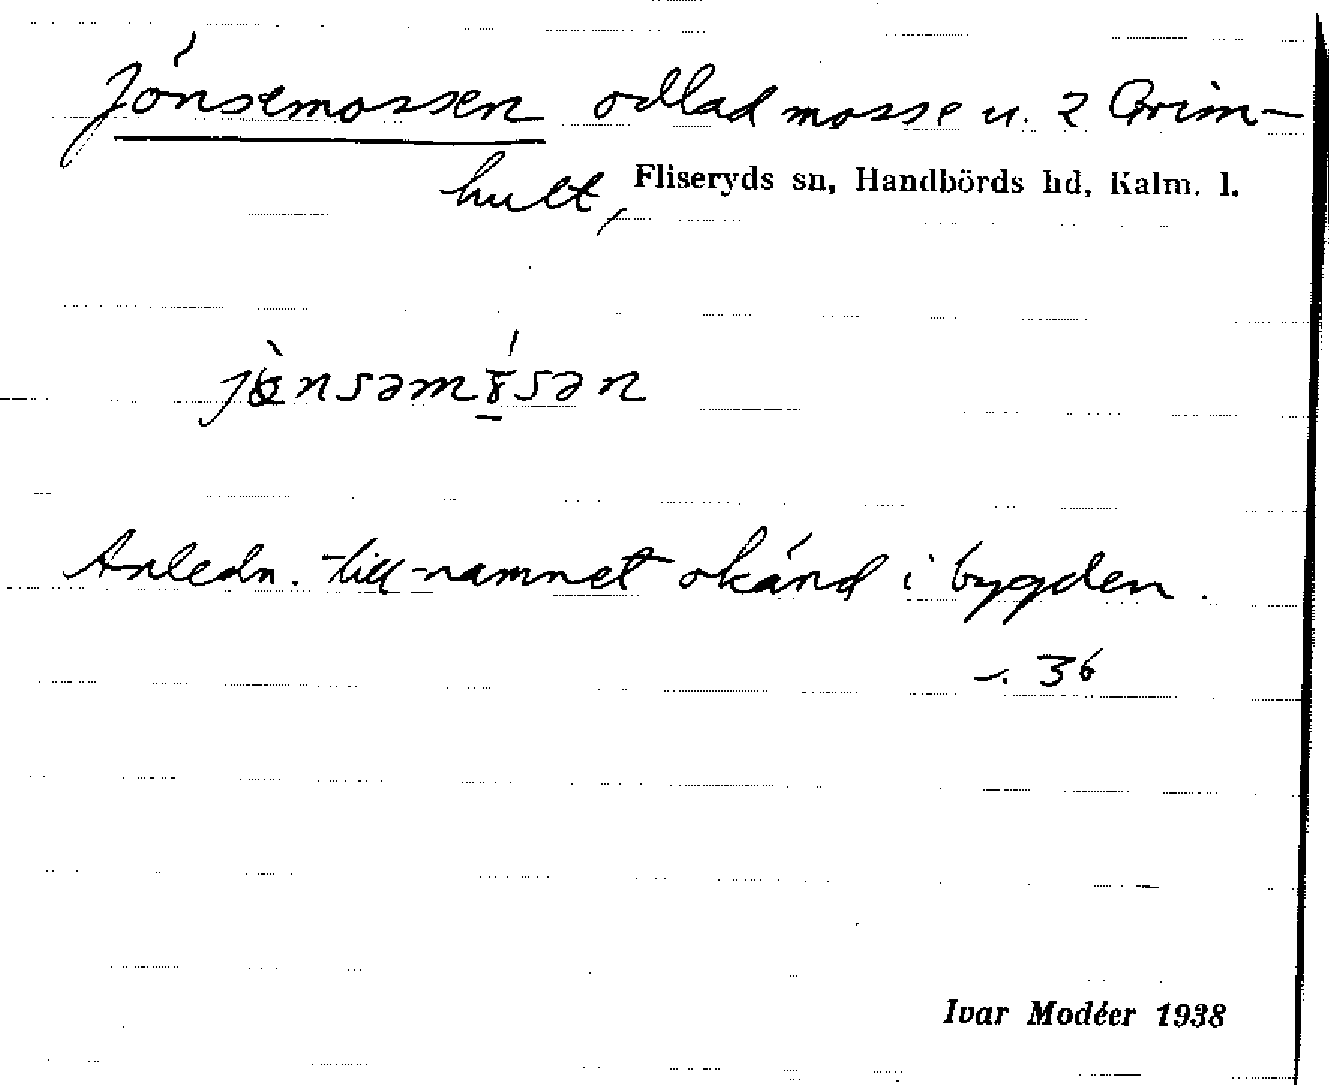 Jönsemossen odlad mosse u. 2 Grim-
hult, Fliseryds sn, Handbörds hd, Kalm. l.
Anledn. till namnet okänd i bygden.
36
Ivar Modéer 1938